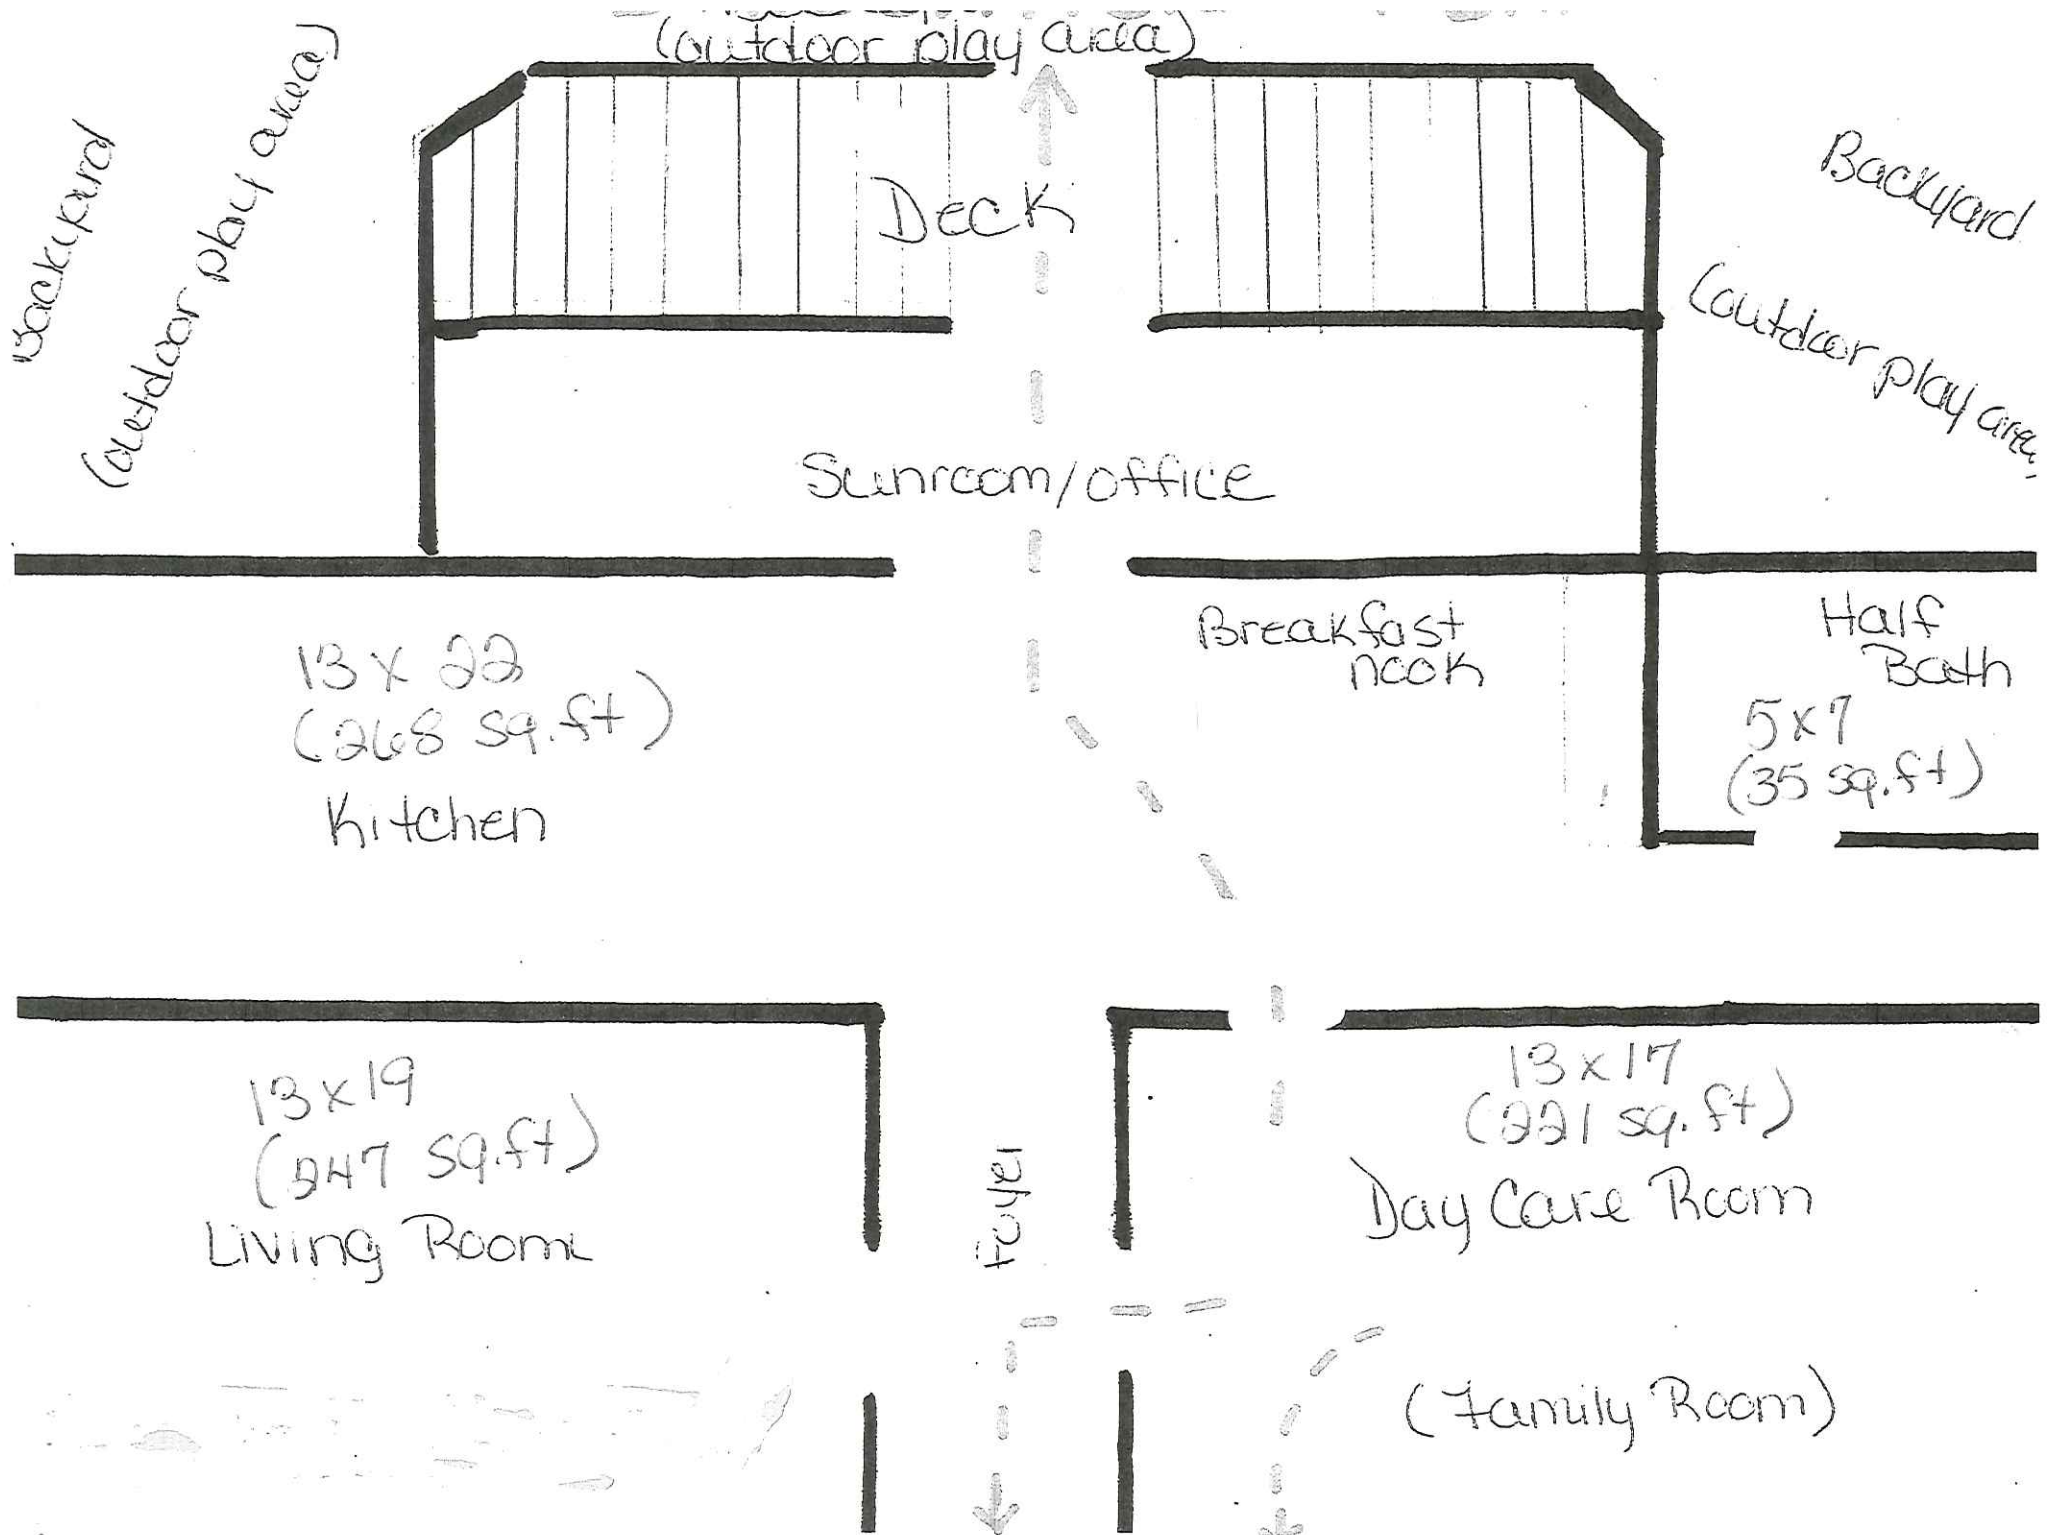 (outdoor play area)
Backyard
(outdoor play area)
Deck
Backyard
(outdoor play area
Sunroom/office
13 x 22
(268 sq.ft)
Kitchen
Breakfast
nook
Half
Bath
5x7
(35 sq.ft)
13x19
(247 sq.ft)
Living Room
Foyer
13x17
(221 sq.ft)
Day Care Room
(Family Room)